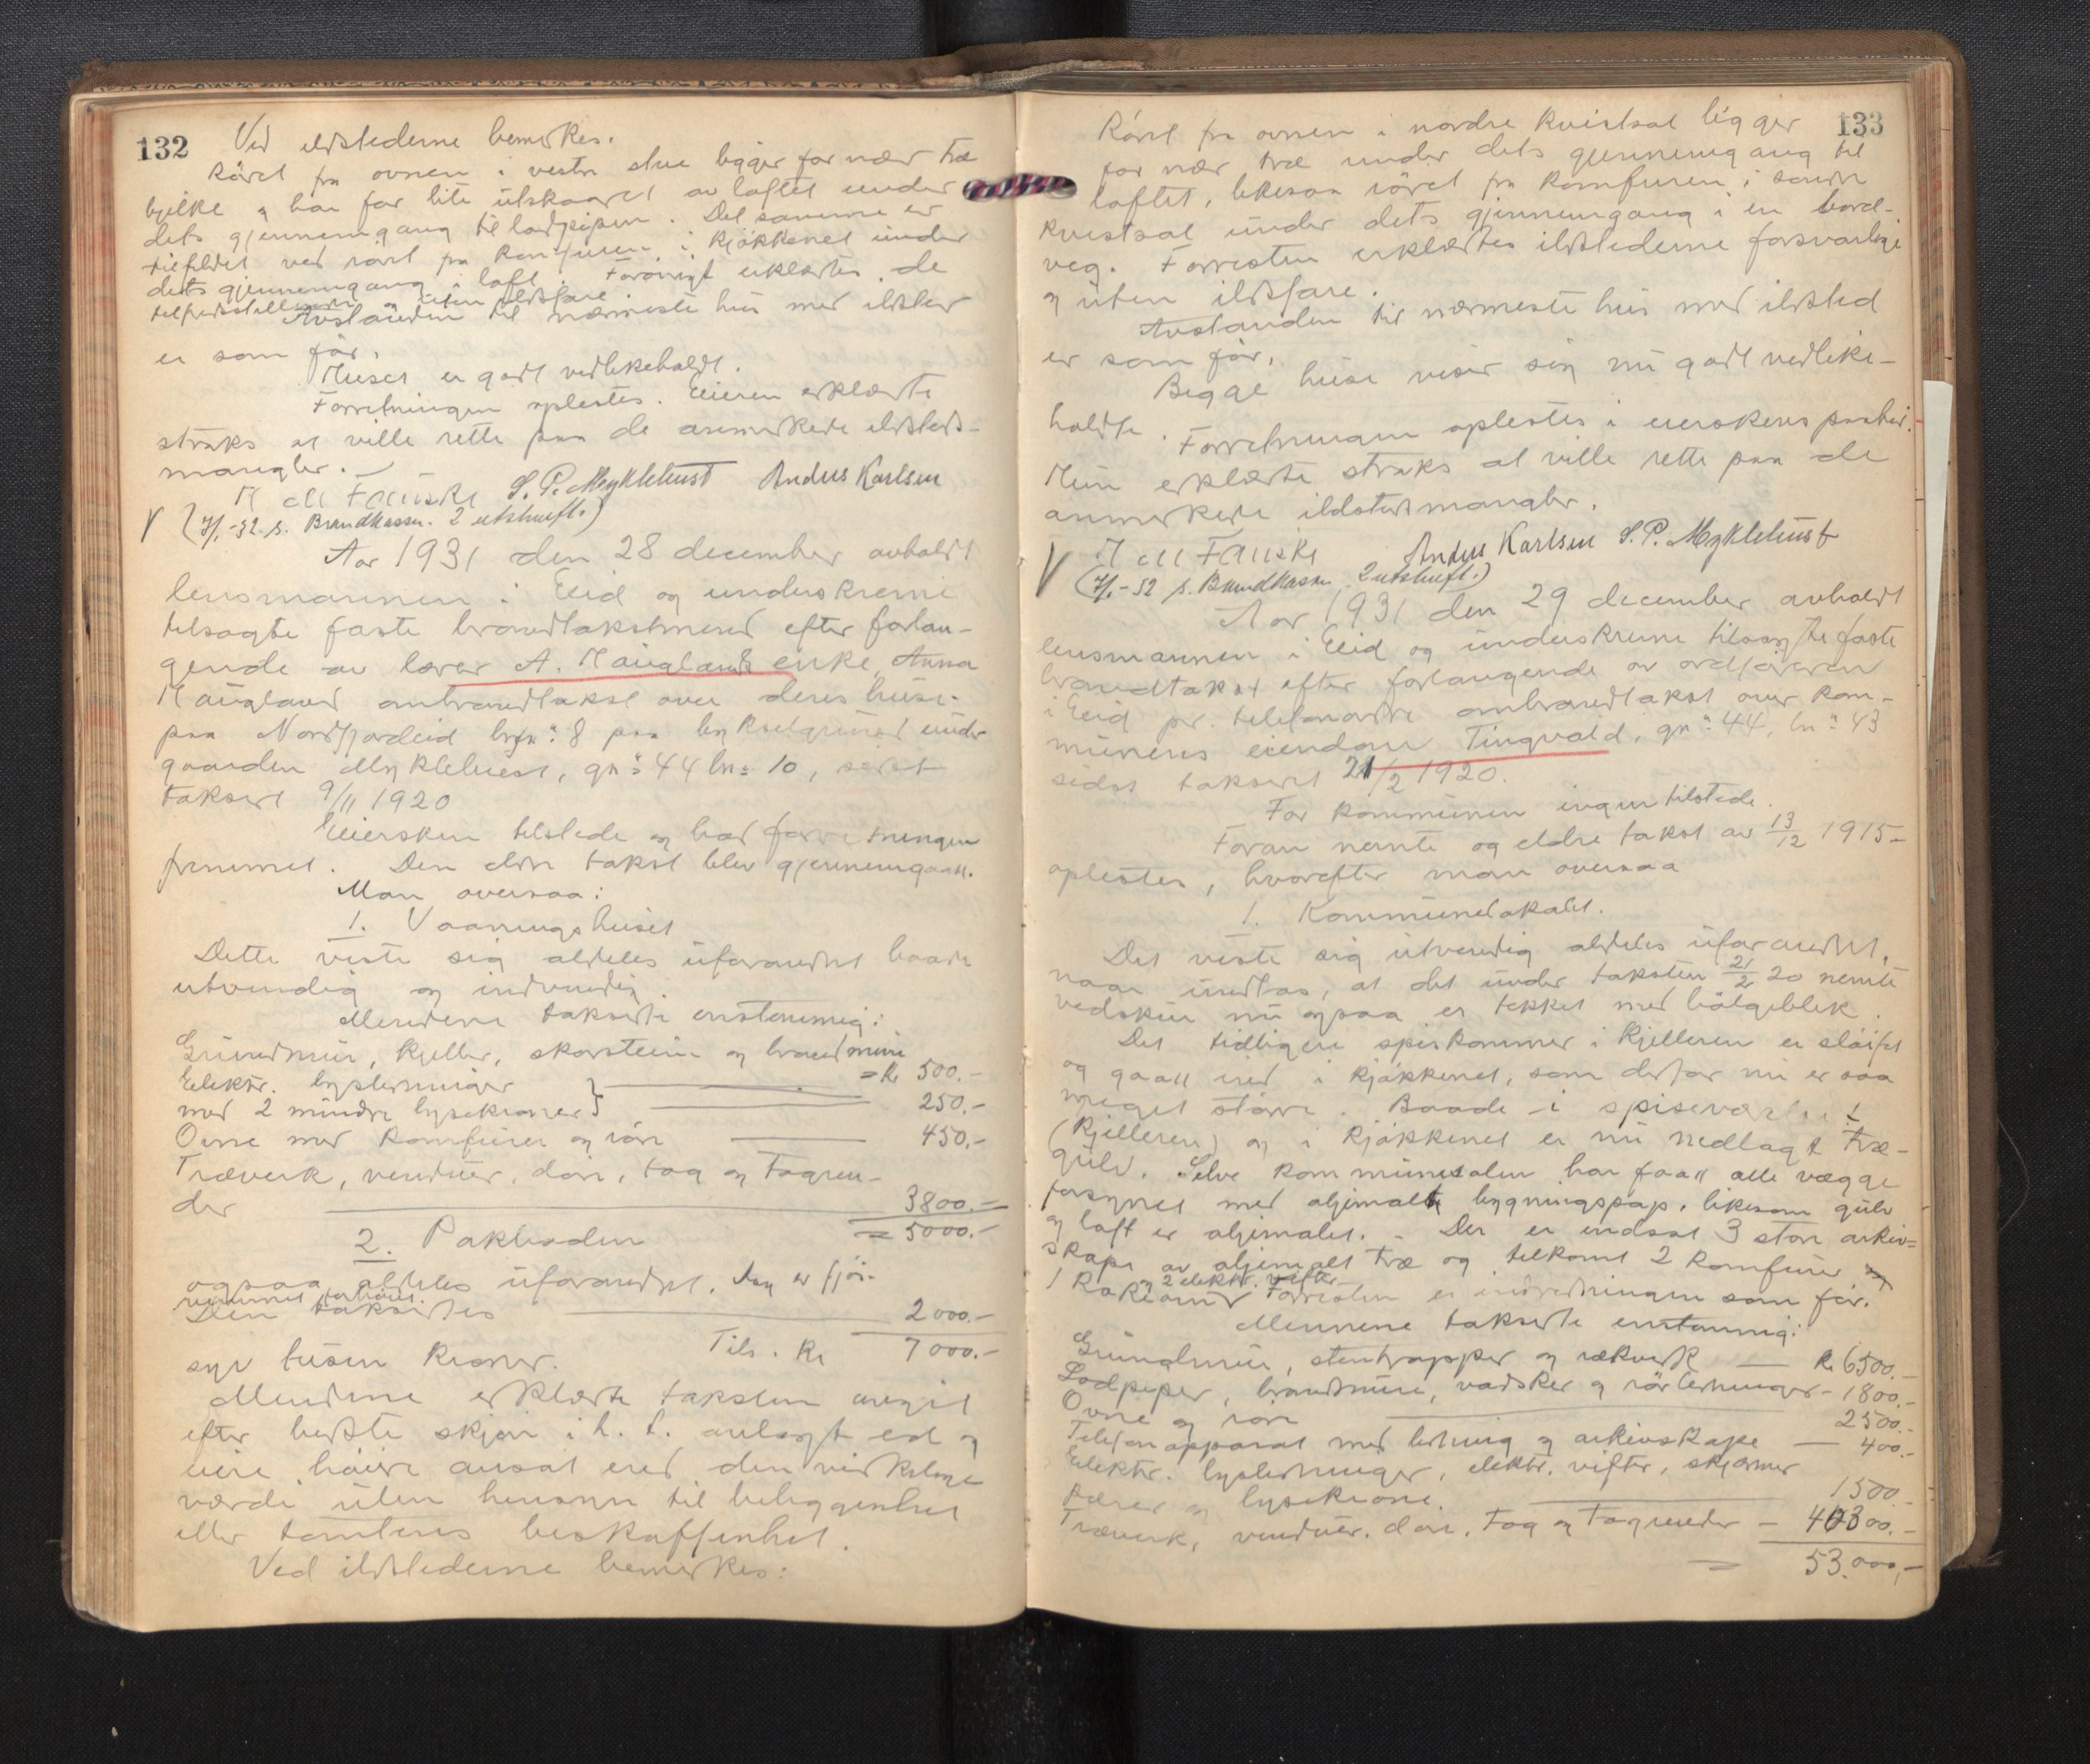 132
Ved ildstederne bemerkes.
Röret fra ovnen i vestre stue ligger for nær træ
bjelke og har for lite utskaaret av loftet under
dets gjennemgang til lodpipen. Det samme er
tilfældet ved röret fra komfuren i kjökkenet under
dets gjennemgang i loft. Forövrigt erklærtes de
tilfredsstillende og uten ildsfare.
Avstanden til nærmeste hus med ildsted
er som för.
Huset er godt vedlikeholdt.
Forretningen oplæstes. Eieren erklærte
straks at ville rette paa de anmerkede ildsteds-
mangler.
M M Fauske S. P. Myklebust Anders Karlsen
V (7/1-32. s. Brandkassen. 2 utskrift.)
Aar 1931 den 28 december avholdt
lensmannen i Eid og underskrevne
tilsagte faste brandtakstmend efter forlan-
gende av lærer A. Hauglands enke, Anna
Haugland ombrandtakst over deres huse
paa Nordfjordeid brn: 8 paa bykselgrund under
gaarden Myklebust, gn: 44 bn: 10, sidst
taksert 9/11 1920
Eiersken tilstede og bad forretningen
fremmet. Den eldre takst blev gjennemgaatt.
Man oversaa:
1. Vaaningshuset
Dette viste sig aldeles uforandret baade
utvendig og indvendig.
Mendene takserte enstemmig:
Grundmur, kjeller, skorstein og brandmure
= Kr 500.-
Elektr. lysledninger
med 2 mindre lysekroner } 250.-
Ovne med komfurer og rör 450.-
Træverk, vinduer, döre, tag og tagren-
der 3800.-
= 5000.-
2. Pakboden
ogsaa aldeles uforandret. Den er fjös-
Den taksertes 2000.-
Tils. Kr 7000.-
syv tusen kroner.
Mendene erklærte taksten avgit
efter bedste skjön i h. t. avlagt ed og
ikke höiere ansat end den virkelige
værdi uten hensyn til beliggenhet
eller tomtens beskaffenhet.
Ved ildstederne bemerkes:
133
Röret fra ovnen i nordre kvistsal ligger
for nær træ under dets gjennemgang til
loftet, likesaa röret fra komfuren i söndre
kvistsal under dets gjennemgang i en bord-
veg. Forresten erklærtes ildstederne forsvarlige
og uten ildsfare.
Avstanden til nærmeste hus med ildsted
er som för.
Begge huse viser sig nu godt vedlike-
holdte.
Forretningen oplæstes i eierskens paahör.
Hun erklærte straks at ville rette paa de
anmerkede ildstedsmangler.
M M Fauske Anders Karlsen S. P. Myklebust
V (7/1-32 s. Brandkassen, 2 utskrift.)
Aar 1931 den 29 december avholdt
lensmannen i Eid og underskrevne tilsagte faste
brandtakst efter forlangende av ordföreren
i Eid pr. telefonordre ombrandtakst over kom-
munens eiendom Tingvold, gn: 44, bn: 43
sidst taksert 21/2 1920.
For kommunen ingen tilstede.
Foran nemte og eldre takst av 13/12 1915-
oplæstes, hvorefter man oversaa
1. Kommunelokalet.
Det viste sig utvendig aldeles uforandret,
naar undtas, at det under taksten 21/2 20 nemte
vedskur nu ogsaa er tekket med bölgeblik.
Det tidligere spiskammer i kjelleren er slöifet
og gaatt ind i kjökkenet, som derfor nu er saa
meget större. Baade i spiseværelset
(kjelleren) og i kjökkenet er nu nedlagt træ-
gulv. Selve kommunesalen har faatt alle vægge
forsynet med oljemalt bygningspap, likesom gulv
og loft er oljemalet. - Der er indsat 3 store arkiv-
skape av oljemalt træ og tilkomt 2 komfurer
og 2 elektr. vifter
1 kakkelovn. Forresten er indredningen som för.
Mennene takserte enstemmig:
Grundmur, stentrapper og rækverk — Kr 6500.-
Lodpiper, brandmure, vadsker og rörledninger - 1800.-
Ovne og rör 2500.-
Telefonapparat med ledning og arkivskape — 400.-
Elektr. lysledninger, elektr. vifter, skjærmer
pærer og lysekrone. 1500.-
Træverk, vinduer, döre, tag og tagrender — 40300.-
= 53.000,-